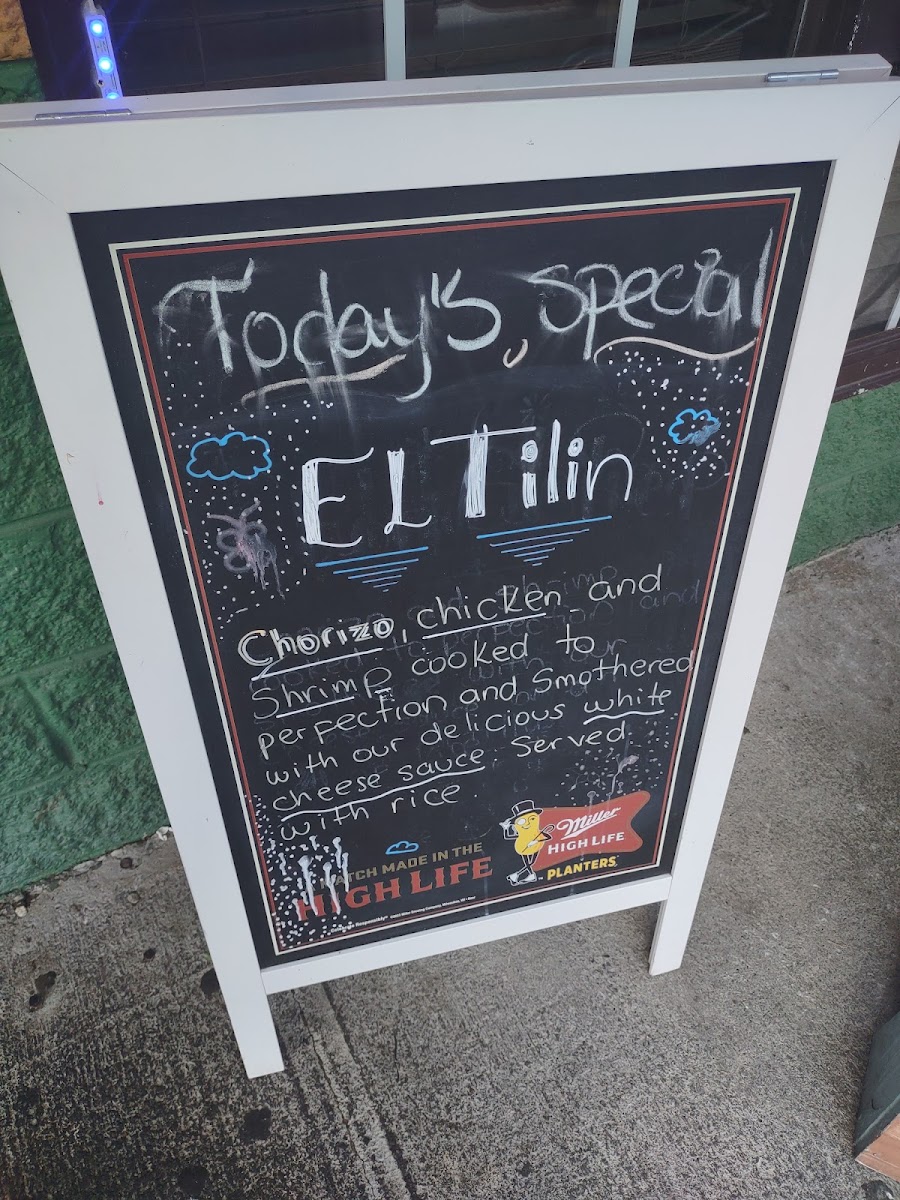 Today's special
EL Tilin
Chorizo, chicken and
Shrimp cooked to
perpection and Smothered
with our delicious white
cheese sauce. Served
with rice
MATCH MADE IN THE
HIGH LIFE
Miller
HIGH LIFE
PLANTERS
Celebrate Responsibly®